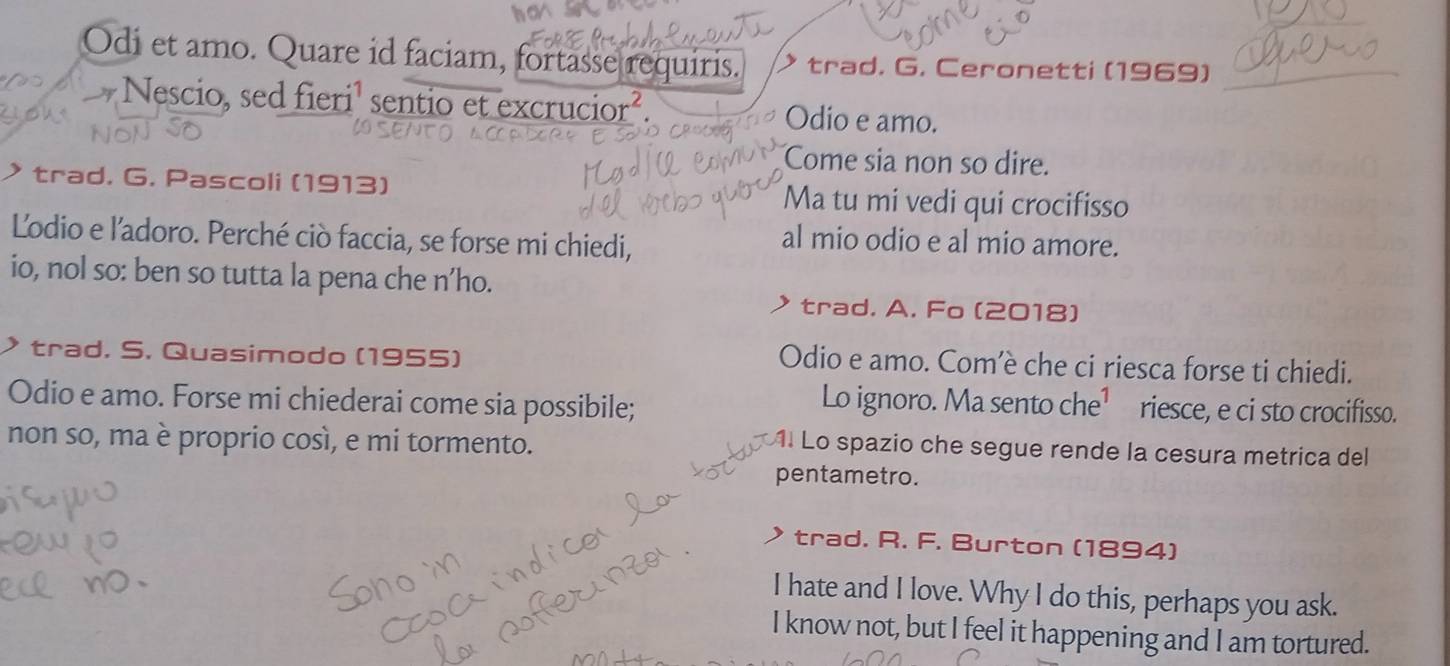 non
FORSE Probabilmente
come
ciò
Odi et amo. Quare id faciam, fortasse requiris.
Nescio, sed fieri¹ sentio et excrucior².
NON SO
LO SENTO ACCADERE E SONO
Radice comune
del verbo
> trad. G. Pascoli (1913)
L'odio e l'adoro. Perché ciò faccia, se forse mi chiedi,
io, nol so: ben so tutta la pena che n'ho.
> trad. S. Quasimodo (1955)
Odio e amo. Forse mi chiederai come sia possibile;
non so, ma è proprio così, e mi tormento.
no.
Sono in
croce indica la
la sofferenza.
> trad. G. Ceronetti (1969)
Odio e amo.
Come sia non so dire.
Ma tu mi vedi qui crocifisso
al mio odio e al mio amore.
> trad. A. Fo (2018)
Odio e amo. Com'è che ci riesca forse ti chiedi.
Lo ignoro. Ma sento che¹ riesce, e ci sto crocifisso.
1. Lo spazio che segue rende la cesura metrica del
pentametro.
> trad. R. F. Burton (1894)
I hate and I love. Why I do this, perhaps you ask.
I know not, but I feel it happening and I am tortured.